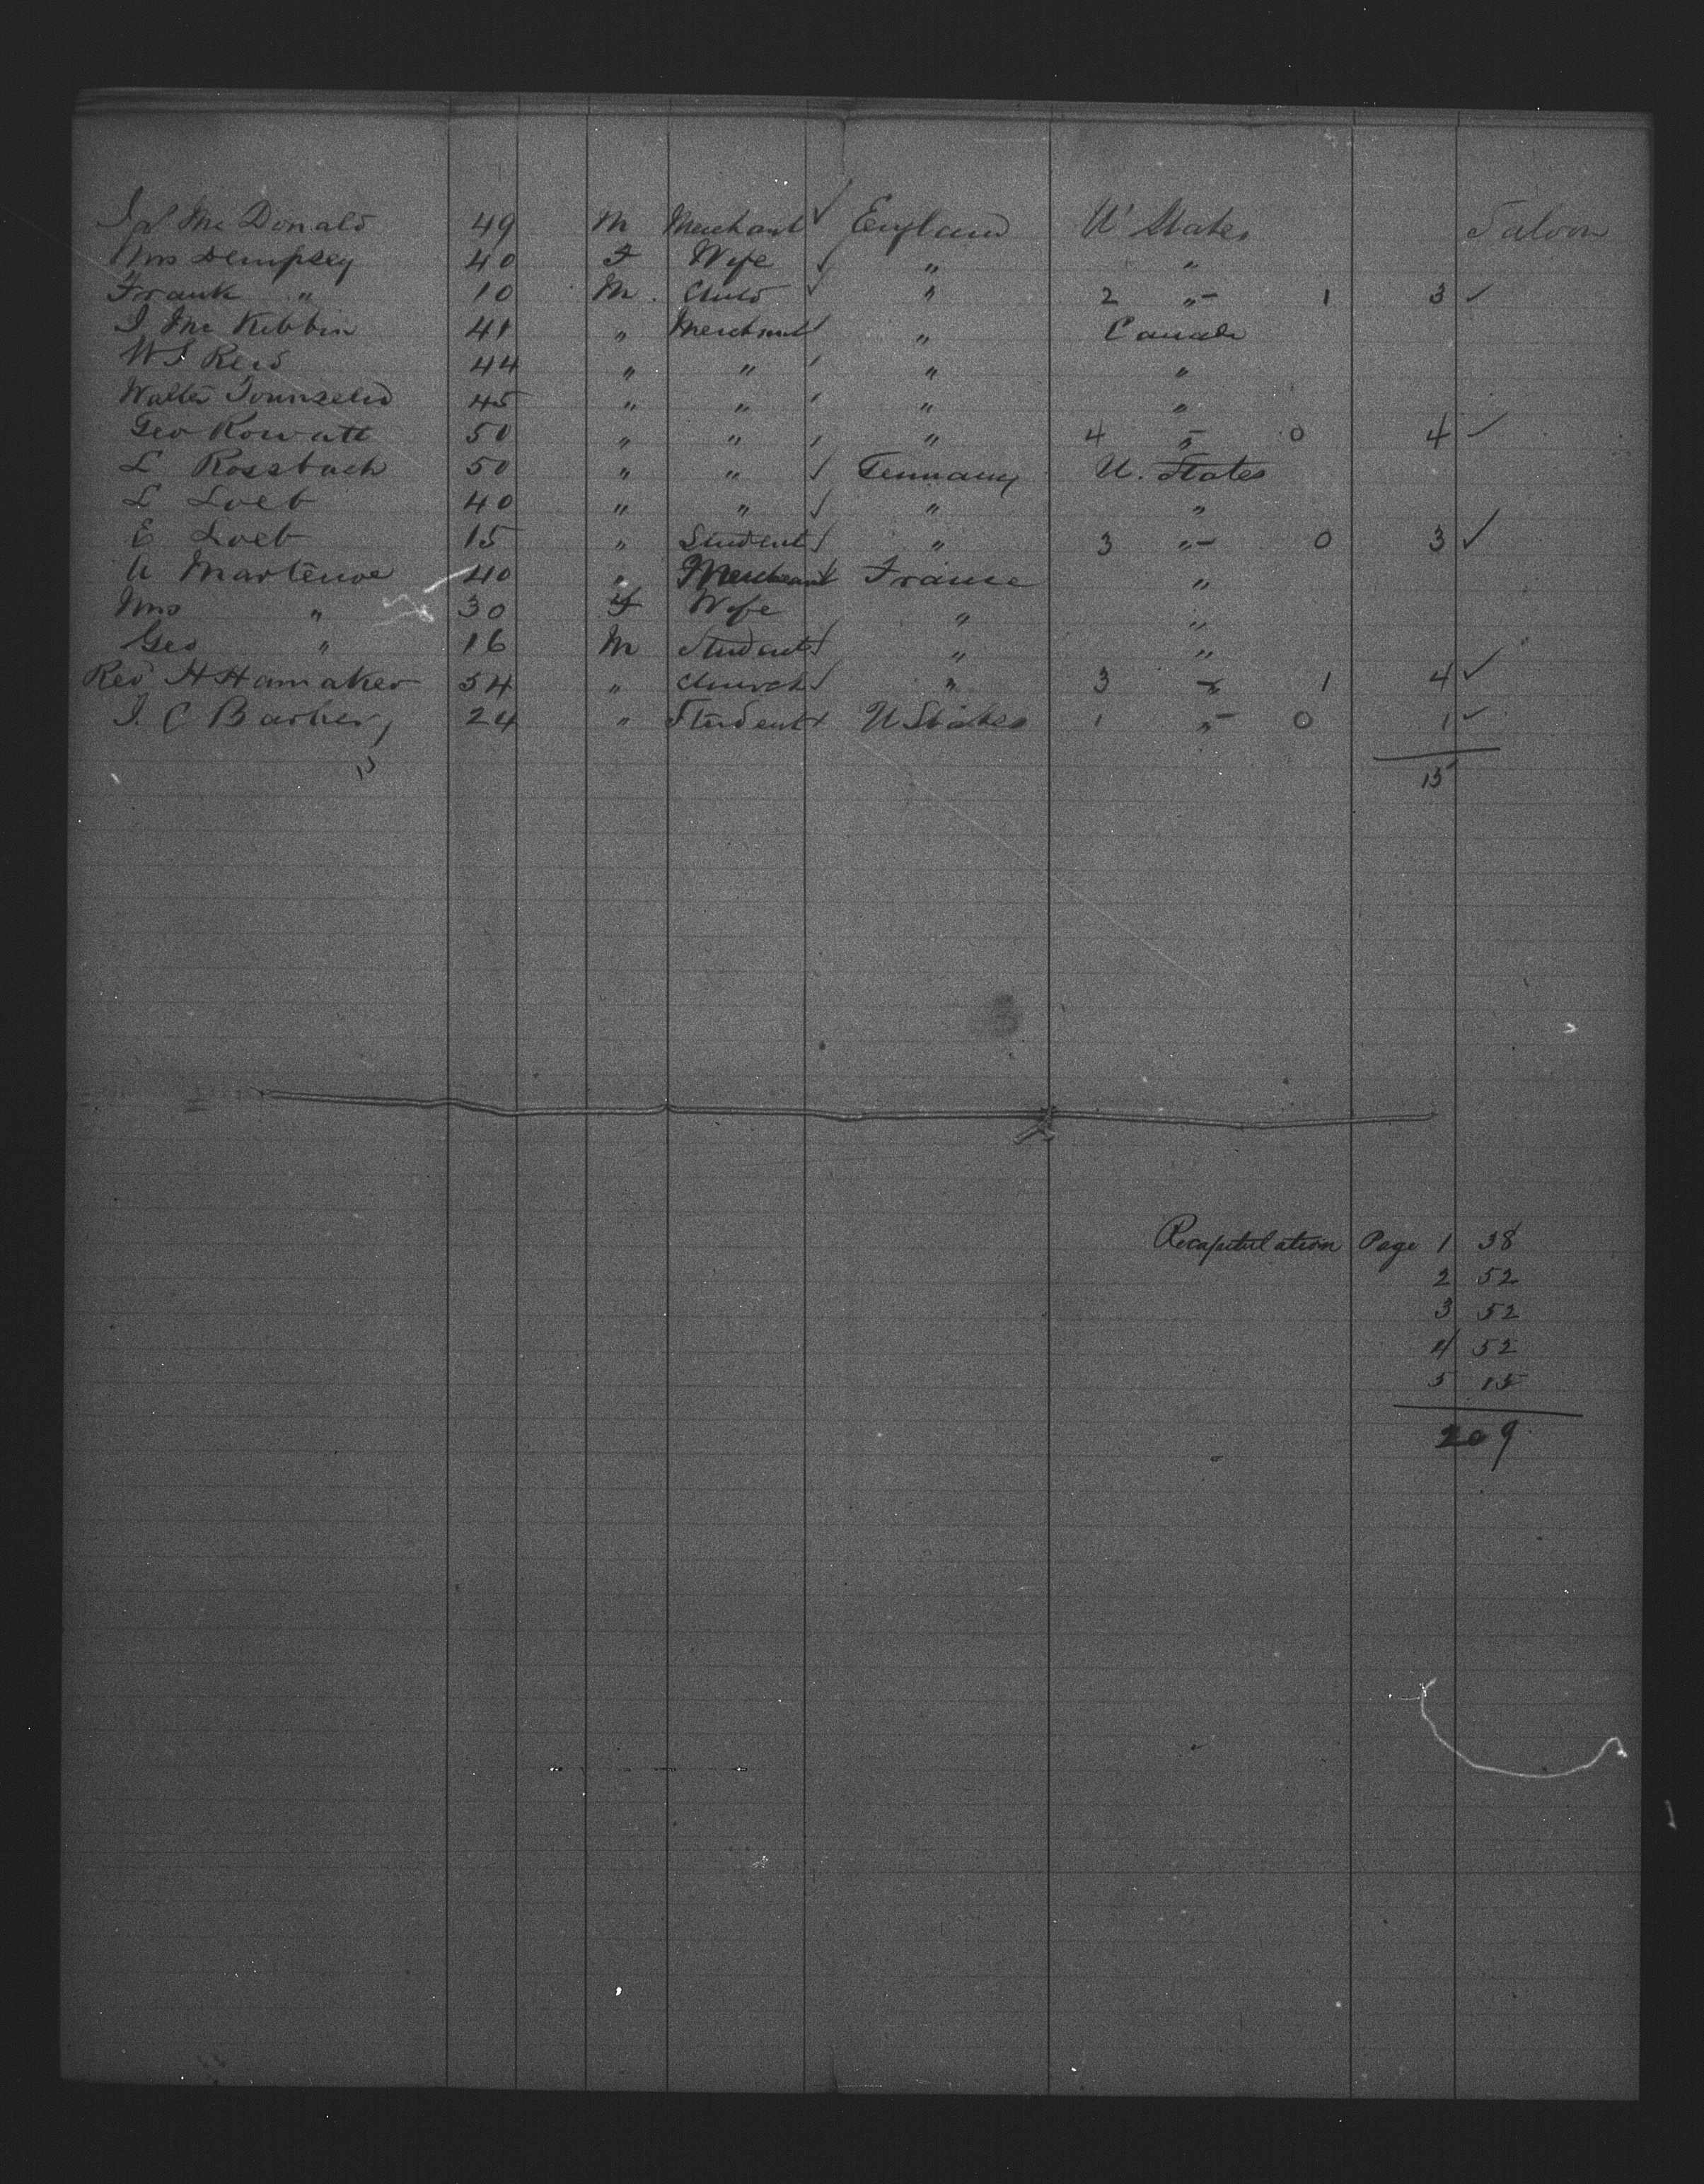 J L McDonald 49 M Merchant ✓ England U States Saloon
Mrs Dempsey 40 F Wife ✓ " "
Frank " 10 M. Child ✓ " 2 " 1 3 ✓
J McKibbin 41 " Merchant ✓ " Canada
W S Reid 44 " " ✓ " "
Walter Townsend 45 " " ✓ " "
Geo Rowatt 50 " " ✓ " 4 " 0 4 ✓
L Rossbach 50 " " ✓ Germany U. States
L Loeb 40 " " ✓ " "
E Loeb 15 " Student ✓ " 3 " 0 3 ✓
A 40 " Merchant France "
Mrs " 30 F Wife " "
Geo " 16 M Student ✓ " "
Rev H Hamaker 54 " Church ✓ " 3 " 1 4 ✓
J. C Barber 24 " Student ✓ U States 1 " 0 1 ✓
15 15
Recapitulation Page 1 38
2 52
3 52
4 52
5 15
209